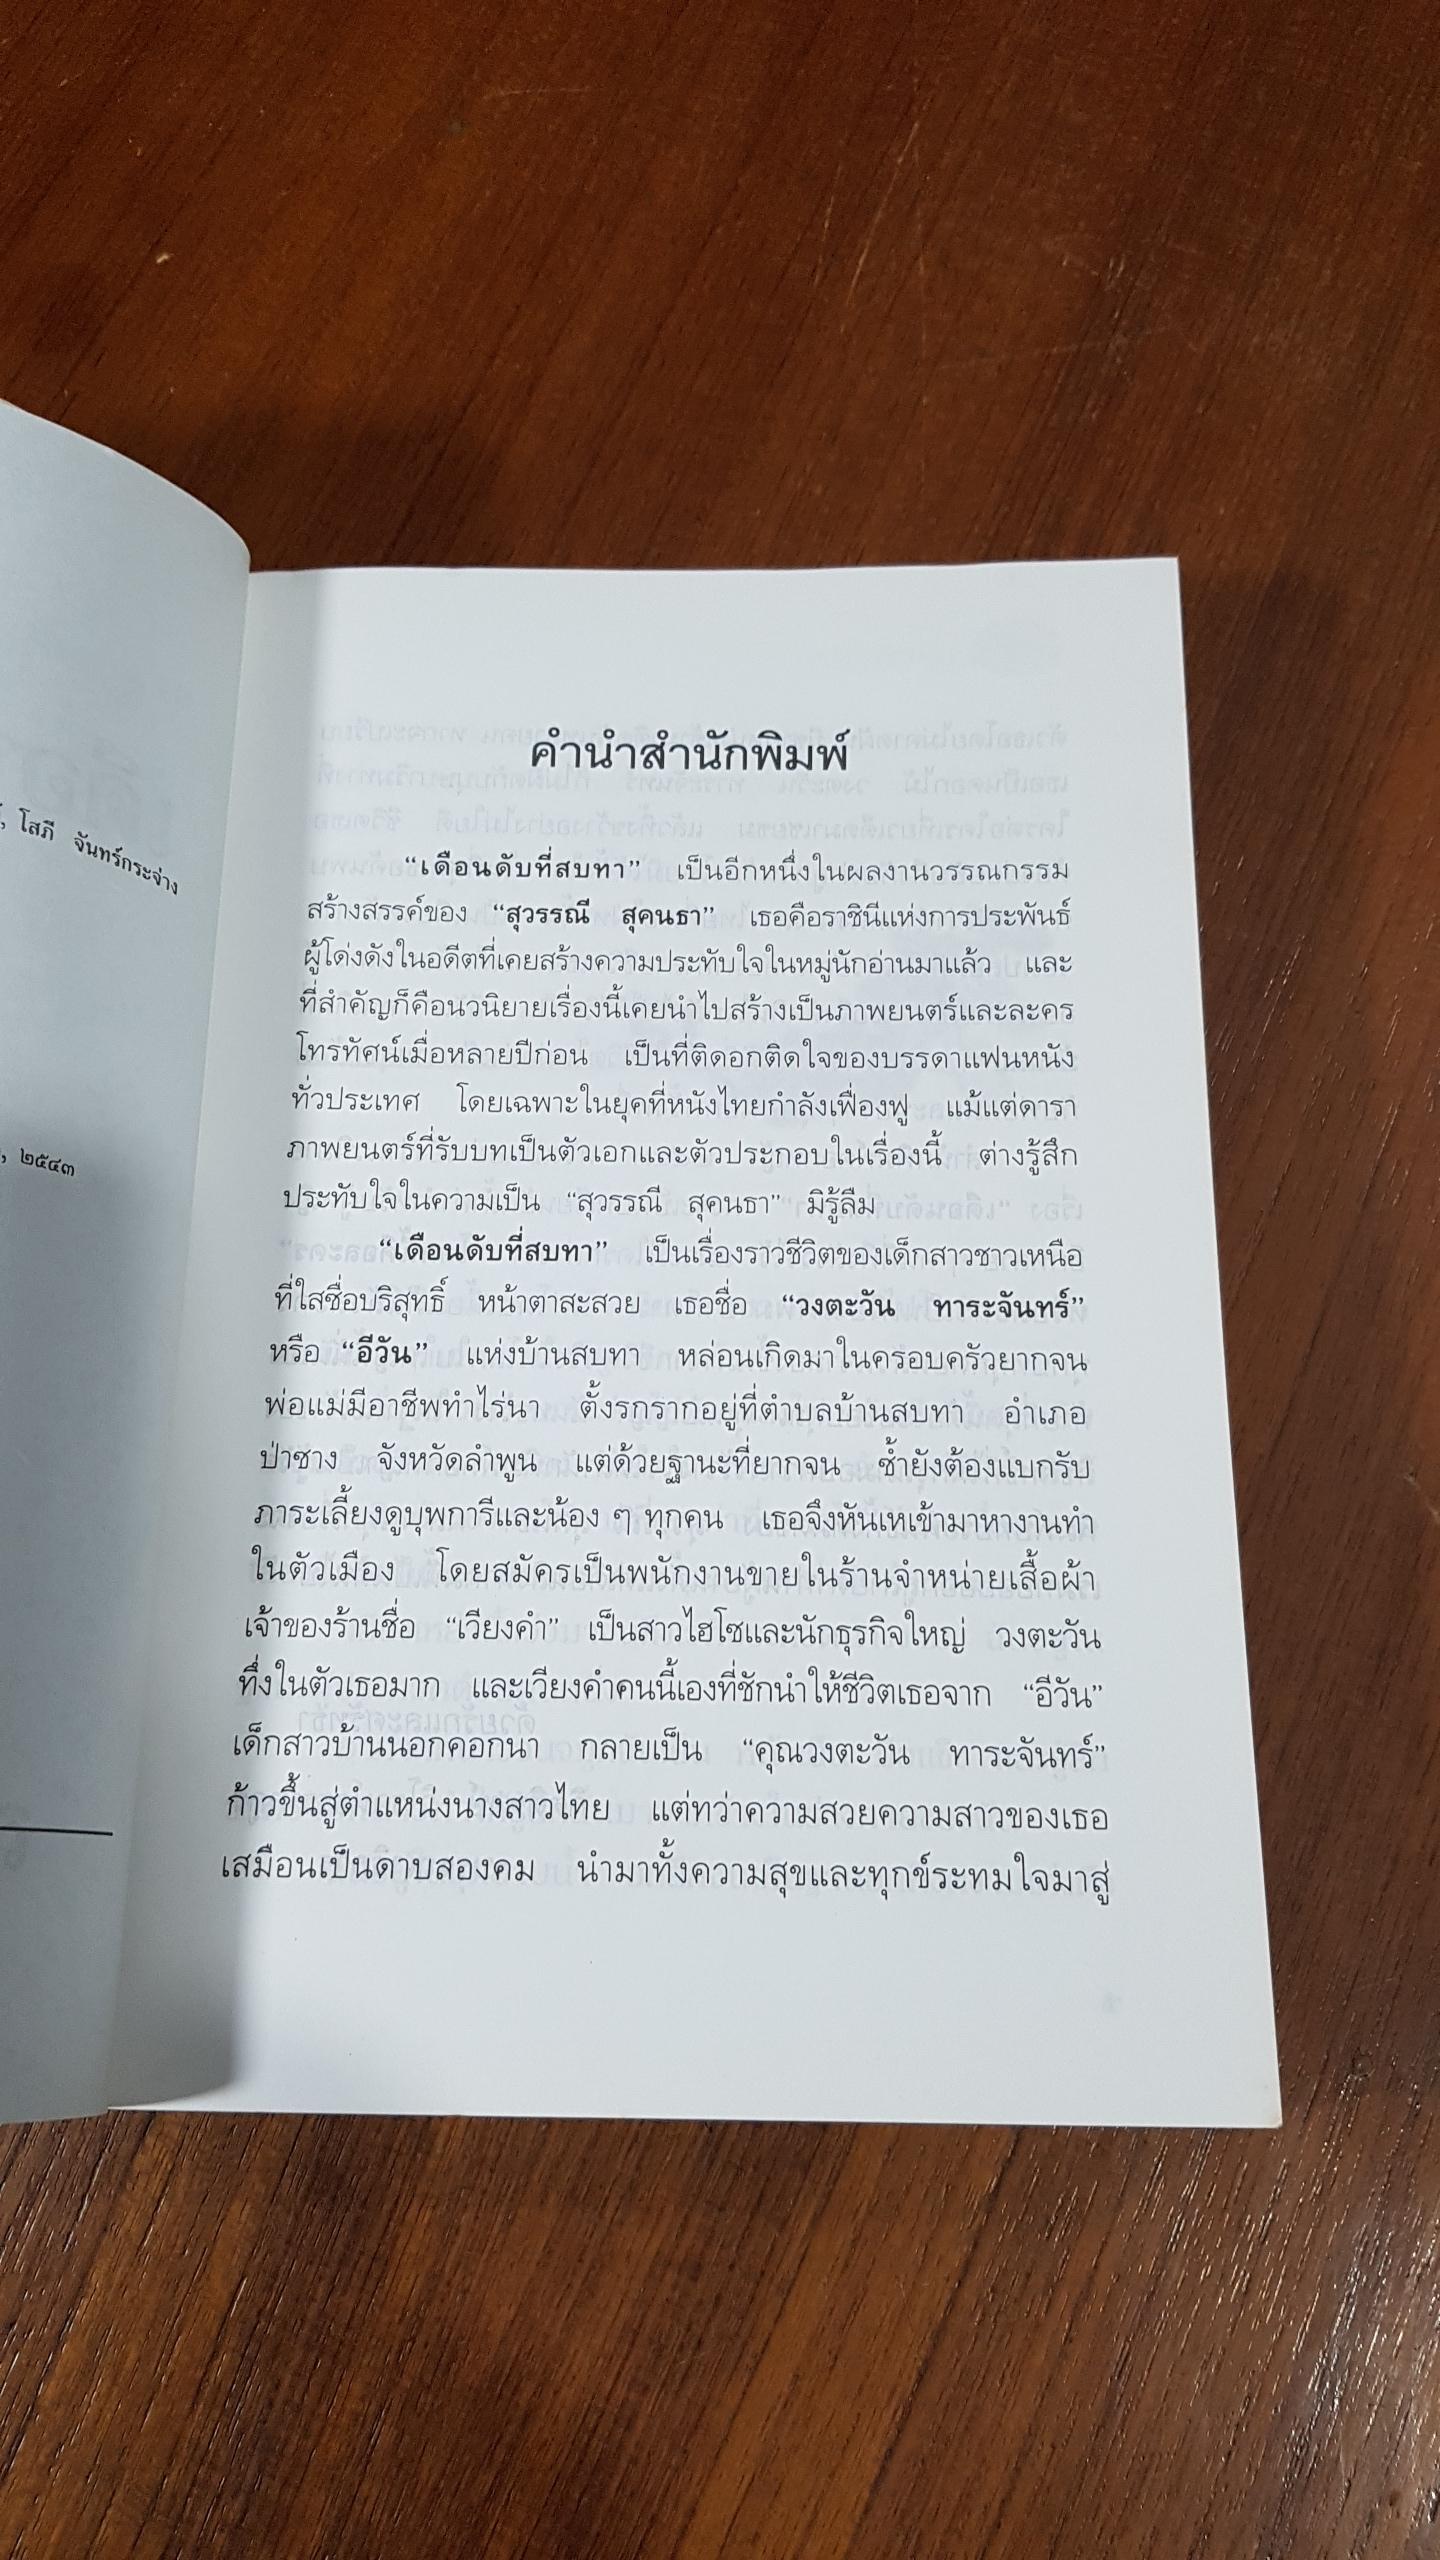 โสภี จันทร์กระจ่าง
, ๒๕๔๓
คำนำสำนักพิมพ์
“เดือนดับที่สบทา” เป็นอีกหนึ่งในผลงานวรรณกรรม
สร้างสรรค์ของ “สุวรรณี สุคนธา” เธอคือราชินีแห่งการประพันธ์
ผู้โด่งดังในอดีตที่เคยสร้างความประทับใจในหมู่นักอ่านมาแล้ว และ
ที่สำคัญก็คือนวนิยายเรื่องนี้เคยนำไปสร้างเป็นภาพยนตร์และละคร
โทรทัศน์เมื่อหลายปีก่อน เป็นที่ติดอกติดใจของบรรดาแฟนหนัง
ทั่วประเทศ โดยเฉพาะในยุคที่หนังไทยกำลังเฟื่องฟู แม้แต่ดารา
ภาพยนตร์ที่รับบทเป็นตัวเอกและตัวประกอบในเรื่องนี้ ต่างรู้สึก
ประทับใจในความเป็น “สุวรรณี สุคนธา” มิรู้ลืม
“เดือนดับที่สบทา” เป็นเรื่องราวชีวิตของเด็กสาวชาวเหนือ
ที่ใสซื่อบริสุทธิ์ หน้าตาสะสวย เธอชื่อ “วงตะวัน ทาระจันทร์”
หรือ “อีวัน” แห่งบ้านสบทา หล่อนเกิดมาในครอบครัวยากจน
พ่อแม่มีอาชีพทำไร่นา ตั้งรกรากอยู่ที่ตำบลบ้านสบทา อำเภอ
ป่าซาง จังหวัดลำพูน แต่ด้วยฐานะที่ยากจน ซ้ำยังต้องแบกรับ
ภาระเลี้ยงดูบุพการีและน้อง ๆ ทุกคน เธอจึงหันเหเข้ามาหางานทำ
ในตัวเมือง โดยสมัครเป็นพนักงานขายในร้านจำหน่ายเสื้อผ้า
เจ้าของร้านชื่อ “เวียงคำ” เป็นสาวไฮโซและนักธุรกิจใหญ่ วงตะวัน
ทึ่งในตัวเธอมาก และเวียงคำคนนี้เองที่ชักนำให้ชีวิตเธอจาก “อีวัน”
เด็กสาวบ้านนอกคอกนา กลายเป็น “คุณวงตะวัน ทาระจันทร์”
ก้าวขึ้นสู่ตำแหน่งนางสาวไทย แต่ทว่าความสวยความสาวของเธอ
เสมือนเป็นดาบสองคม นำมาทั้งความสุขและทุกข์ระทมใจมาสู่